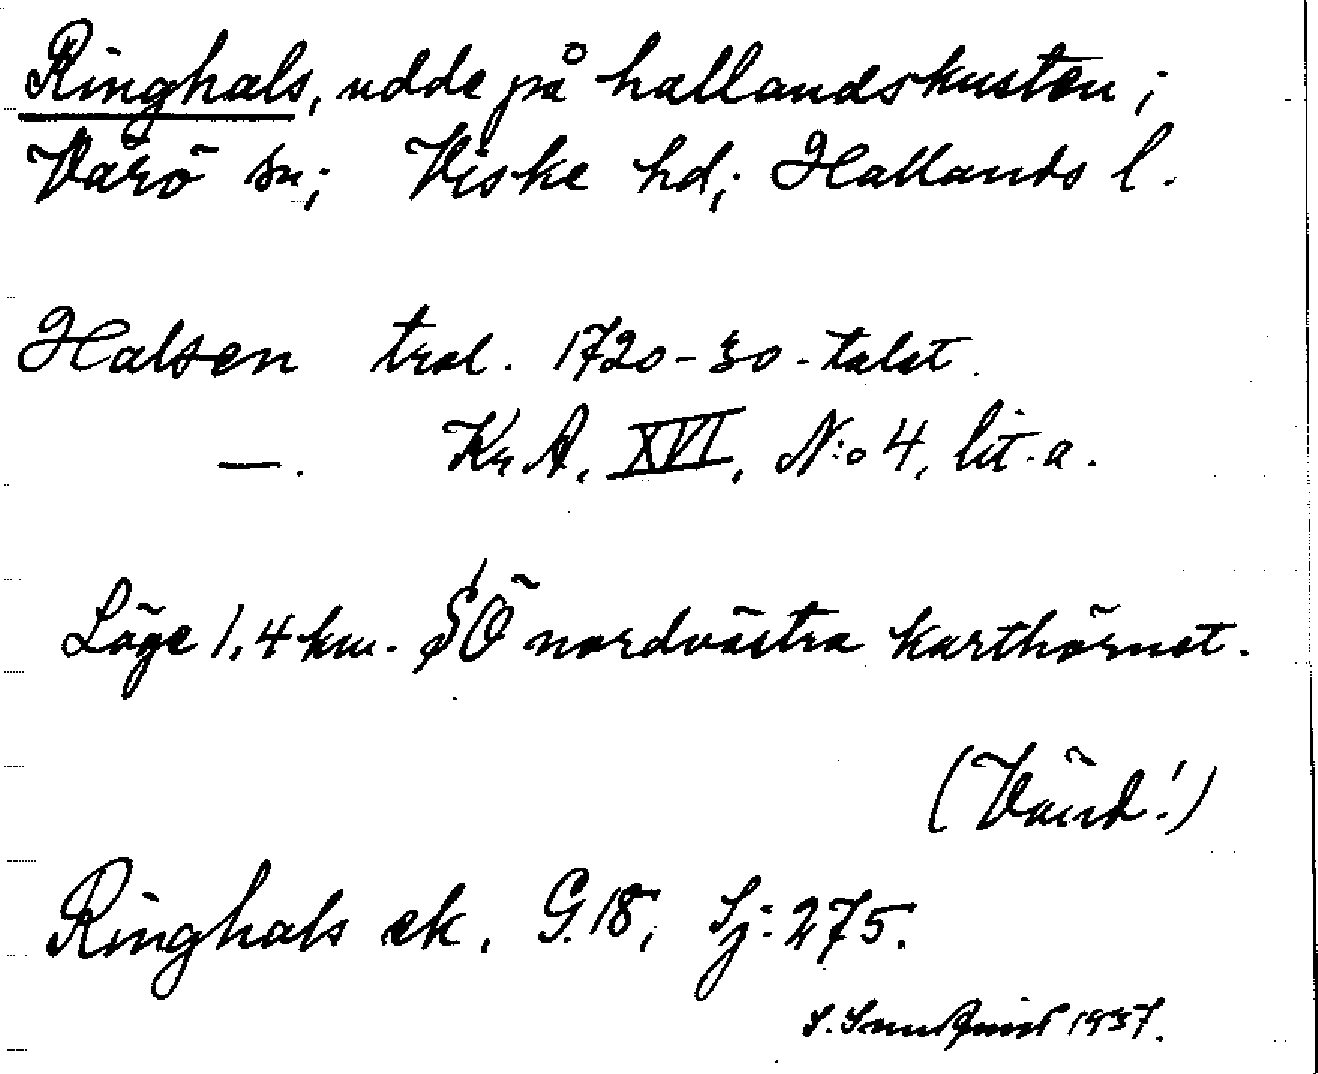 Ringhals, udde på hallandskusten;
Värö sn; Viske hd; Hallands l.
Halsen trol. 1720-30-talet.
—. Kr A, XVI, N:o 4, lit. a.
Läge 1,4 km. SÖ nordvästra karthörnet.
(Vänd!)
Ringhals ek. G.18, Sj: 275.
S. 1937.